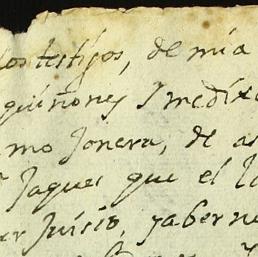 los testigos, de mia
quiñones y me dix
mo Jonera, de a
Jaques que el l
er Juisio, y aberne